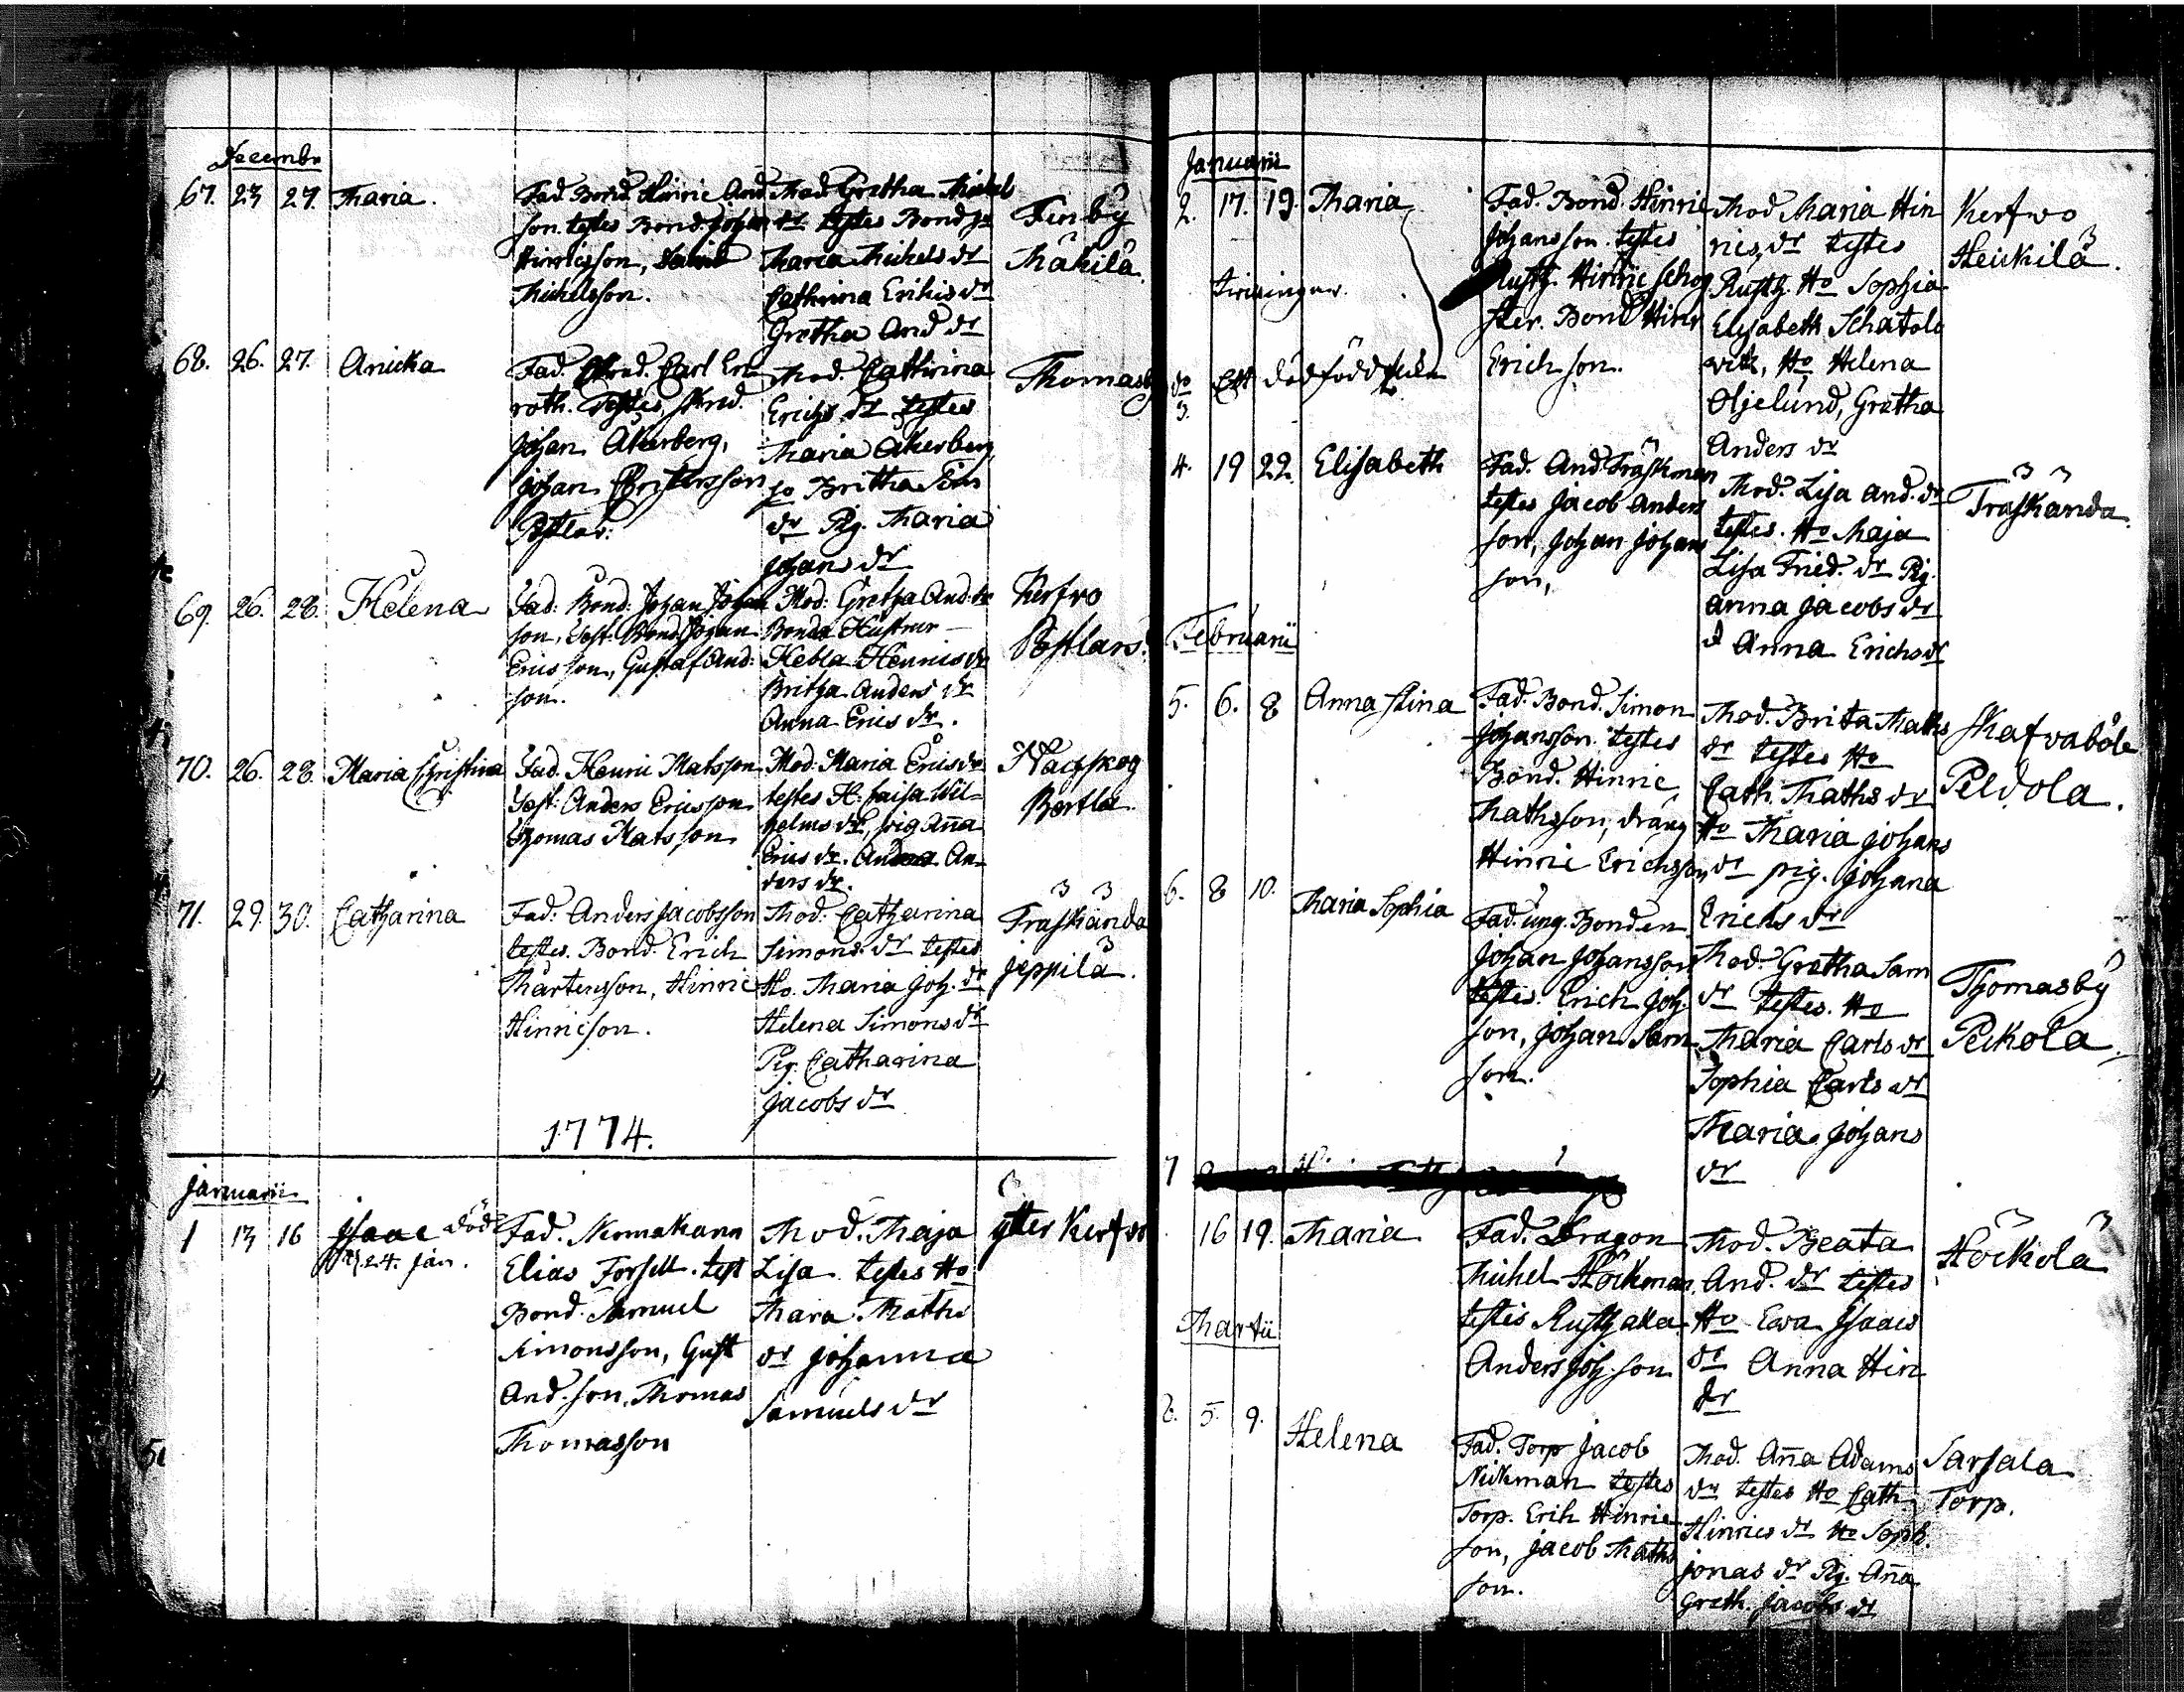 Decembr
67. 23 27. Maria.
Fad. Bond. Hinric And
son. testes Bond. Johan
Hinricsson,
Michelsson.
Mod. Gretha Michels
dr testes Bond
Maria Michels dr
Cathrina Erihis dr
Gretha And dr
Finbÿ
Mäkilä
68. 26. 27. Anicka
Fad. Skred. Carl En
roth. Testes, skred.
Johan Åkerberg,
Johan Christersson
Mod. Cathrina
Erichs dr testes
Maria Åkerberg,
Britha
dr Pig. Maria
Johans dr
Thomasby
69. 26. 28. Helena
Fad: Bond: Johan Johan
son, Test: Bond Johan
Ericsson, Gustaf And:
son.
Mod: Gretha And: dr
Bonde Hustrur
Hebla Henrics dr
Britha Anders dr
Anna Erics dr.
Kerfvo
Postlars
70. 26. 28. Maria Christina
Fad. Henric Matsson
Test: Anders Ericsson
Thomas Matsson
Mod: Maria Erics dr
testes H. Caisa Wil-
helms dr, pig Aña
Erics dr. An-
ders dr.
Bertla
71. 29. 30. Catharina
Fad: Anders Jacobsson
testes. Bond. Erich
Mårtensson, Hinric
Hinricson.
Mod: Catharina
Simons dr testes
Ho. Maria Joh. dr
Helena Simons dr
Pig. Catharina
Jacobs dr
Träskända
Jeppilä.
1774.
Januarii
1 13 16 Isaac död
24. Jan.
Fad. Nemakarn
Elias Forsell. test
Bond. Samuel
Simonsson, Gust
And. son, Thomas
Thomasson
Mod. Maja
Lisa testes Ho
Maria Maths
dr Johanna
Samuels dr
ytter Kerfvo
Januarii
2. 17. 19. Maria
Tvisingar.
Fad. Bond. Hinric
Johansson testes
Rusth. Hinric Schog
ster. Bond Hinr
Erichson.
Mod Maria Hin
rics dr testes
Rusth. Ho Sophia
Elisabeth Schatelo
witz, Ho Helena
Oljelund, Gretha
Anders dr
Kerfvo
Heickilä.
do
3. Ett dödfödd
4. 19 22. Elisabeth
Fad. And. Träskman
testes Jacob Anders
son, Johan Johans
son,
Mod. Lisa And. dr
testes. Ho Maja
Lisa Fried. dr Pig.
Anna Jacobs dr
d Anna Erichs dr
Träskända.
Februarii
5. 6. 8 Anna Stina
Fad. Bond. Simon
Johansson testes
Bond. Hinric
Mathsson, dräng
Hinric Erichsson
Mod. Brita Maths
dr testes Ho
Cath. Maths dr
Ho Maria Johans
dr pig. Johana
Erichs dr
Skafvaböle
Peldola.
6. 8 10. Maria Sophia
Fad. ung. Bonden
Johan Johansson
testes. Erich Joh.
son, Johan Sam
son.
Mod. Gretha Sam
dr testes. Ho
Maria Carls dr
Sophia Carls dr
Maria Johans
dr
Thomasbÿ
Peckola
7
16 19. Maria
Fad. Dragon
Michel Höckman
testis Rusthålla
Anders Joh. son
Mod. Beata
And. dr testes
Ho Ewa Isaacs
dr Anna Hin
dr
Höckölä
Martii
8. 5. 9. Helena
Fad. Torp Jacob
Nickman testes
Torp. Erich Hinric
son, Jacob Maths
son.
Mod. Aña Adams
dr testes Ho Cath
Hinrics dr Ho Soph.
Jonas dr Pig. Aña
Greth. Jacobs dr
Sarsala
Torp.